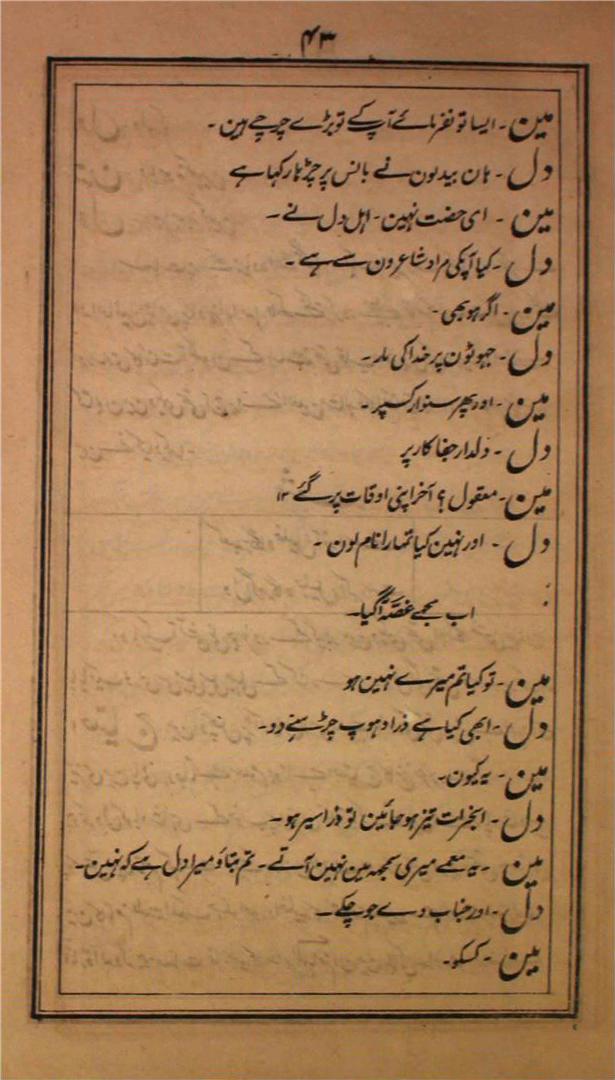 ۴۳
مین۔ ایسا تو نفرمائے آپ کے تو بڑے چرچے ہین۔
دل۔ ہان بیدلون نے بانس پر چڑہار کہا ہے
مین۔ ای حضت نہین۔ اہل دل نے۔
دل۔ کیا آپکی مراد شاعرون سے ہے۔
مین۔ اگر ہو بھی۔
دل۔ جہوٹون پر خدا کی مار۔
مین۔ اور پھر سنوار کسپر۔
دل۔ دلدار جفا کار پر
مین۔ معقول؟ آخر اپنی اوقات پر گئے ۱۲
دل۔ اور نہین کیا تمہارا نام لون۔
اب مجھے غصّہ آگیا۔
مین۔ تو کیا تم میرے نہین ہو
دل۔ ابھی کیا ہے ذرا دہوپ چڑہنے دو۔
مین۔ یہ کیون۔
دل۔ ابخرات تیز ہو جائین تو ذرا سیر ہو۔
مین۔ یہ معمے میری سمجھہ مین نہین آتے۔ تم بتاؤ میرا دل ہے کہ نہین۔
دل۔ اور جناب دے جو چکے۔
مین۔ کسکو۔